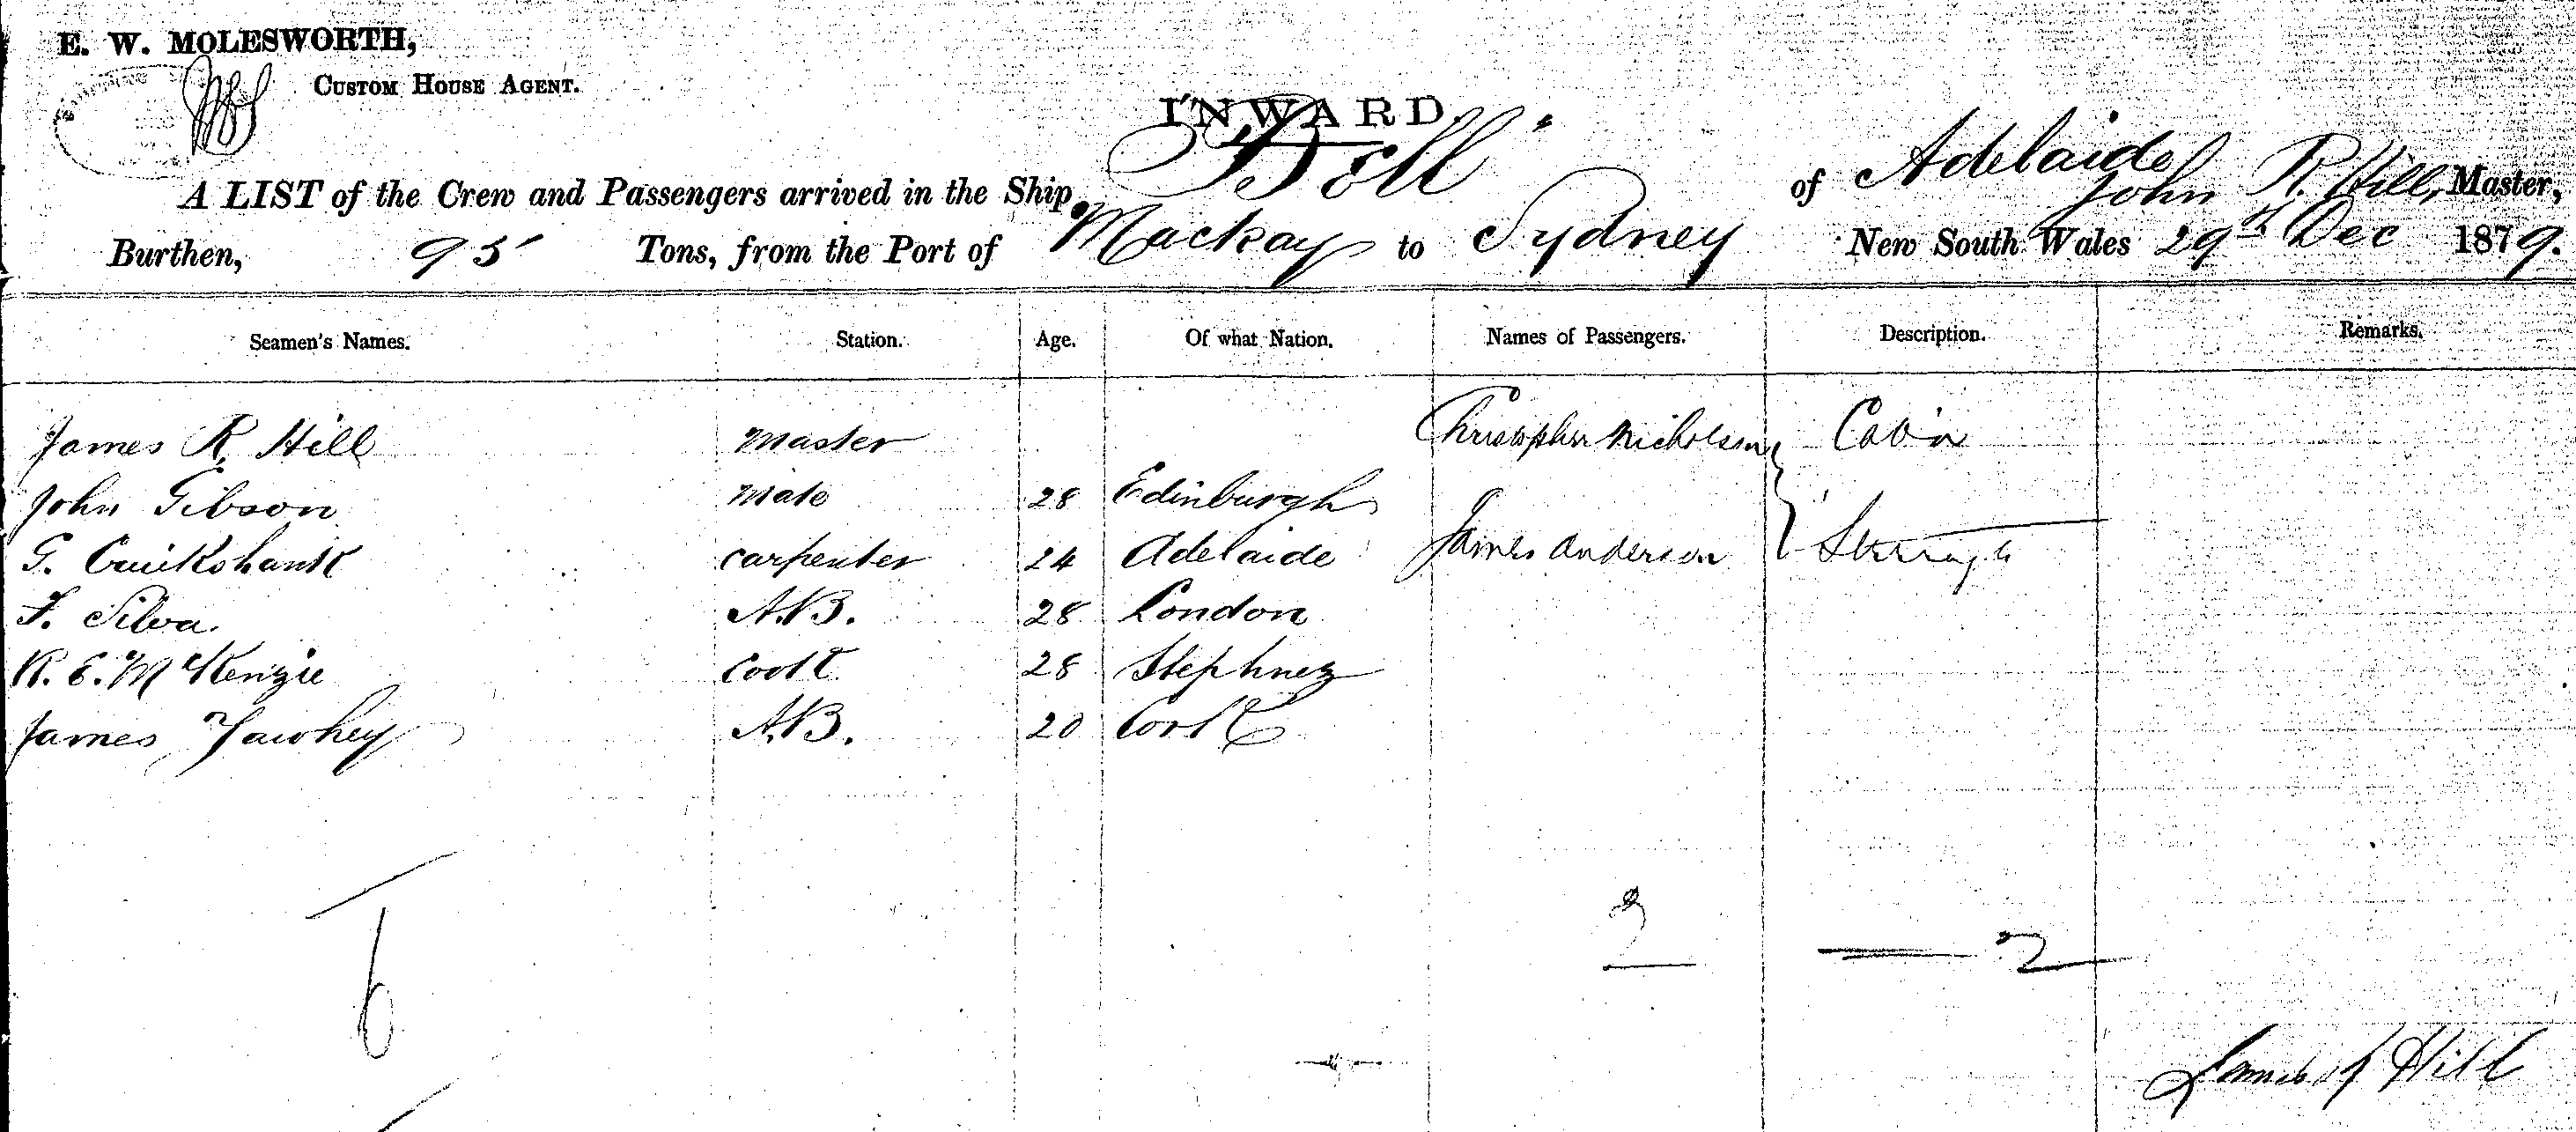 E. W. MOLESWORTH,
CUSTOM HOUSE AGENT.
INWARD.
A LIST of the Crew and Passengers arrived in the Ship "Dell" of Adelaide John R. Hill, Master,
Burthen, 95 Tons, from the Port of Mackay to Sydney New South Wales 29th Dec 1879.
Seamen's Names. Station. Age. Of what Nation. Names of Passengers. Description. Remarks.
James R. Hill Master Christopher Nicholson Cabin
John Gibson Mate 28 Edinburgh
G. Cruikshank Carpenter 24 Adelaide James Anderson Steerage
F. Silva A.B. 28 London
R. E. McKenzie Cook 28 Stephney
James A.B. 20 Cork
6 2 2
James R Hill